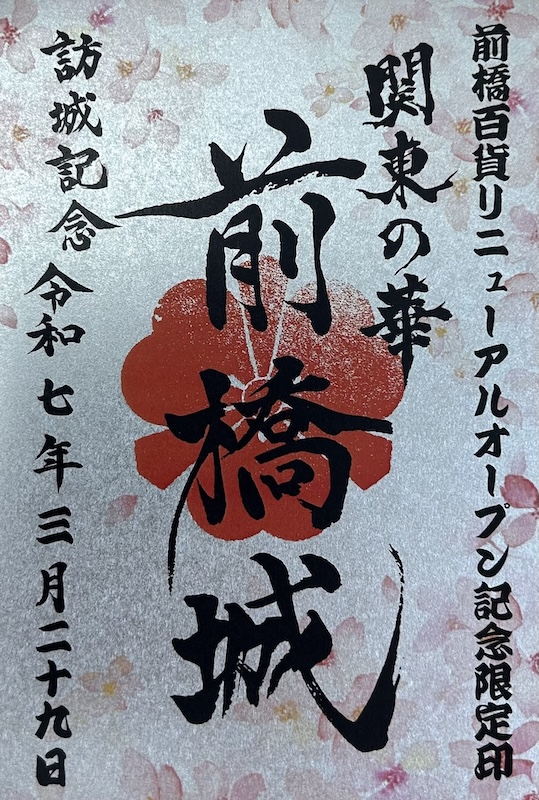 前橋百貨リニューアルオープン記念限定印
関東の華
前橋城
訪城記念 令和七年三月二十九日